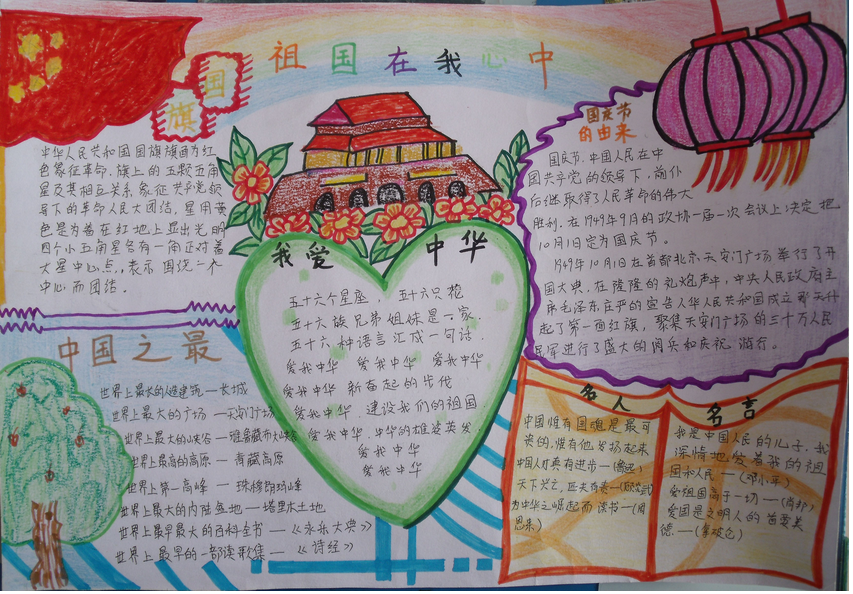 祖国在我心中
国旗
中华人民共和国国旗旗面为红
色象征革命.旗上的五颗五角
星及其相互关系象征共产党领
导下的革命人民大团结,星用黄
色是为着在红地上显出光明
四个小五角星各有一角正对着
大星中心点,表示围绕一个
中心而团结。
中国之最
世界上最大的人造建筑—长城
世界上最大的广场—天安门广场
世界上最大的峡谷—雅鲁藏布大峡谷
世界上最高的高原—青藏高原
世界上第一高峰—珠穆朗玛峰
世界上最大的内陆盆地—塔里木土地
世界上最早最大的百科全书—《永乐大典》
世界上最早的一部诗歌集—《诗经》
我爱中华
五十六个星座,五十六只花
五十六族兄弟姐妹是一家.
五十六种语言汇成一句话.
爱我中华 爱我中华 爱我中华
爱我中华 新奋起的步伐
爱我中华.建设我们的祖国
爱我中华.中华的雄姿英发.
爱我中华
爱我中华
国庆节
的由来
国庆节.中国人民在中
国共产党的领导下.前仆
后继取得了人民革命的伟大
胜利.在1949年9月的政协一届一次会议上决定把
10月1日定为国庆节。
1949年10月1日在首都北京天安门广场举行了开
国大典.在隆隆的礼炮声中,中央人民政府主
席毛泽东庄严的宣告人华人民共和国成立那天升
起了第一面红旗,聚集天安门广场的三十万人民
民军进行了盛大的阅兵和庆祝游行。
名人
名言
中国惟有国魂是最可
贵的.惟有他发扬起来
中国人才真有进步—(鲁迅)
天下兴亡,匹夫有责—(顾炎武)
为中华之崛起而读书—(周
恩来)
我是中国人民的儿子.我
深情地爱着我的祖
国和人民—(邓小平)
爱祖国高于一切—(肖邦)
爱国是文明人的首要美
德.—(拿破仑)